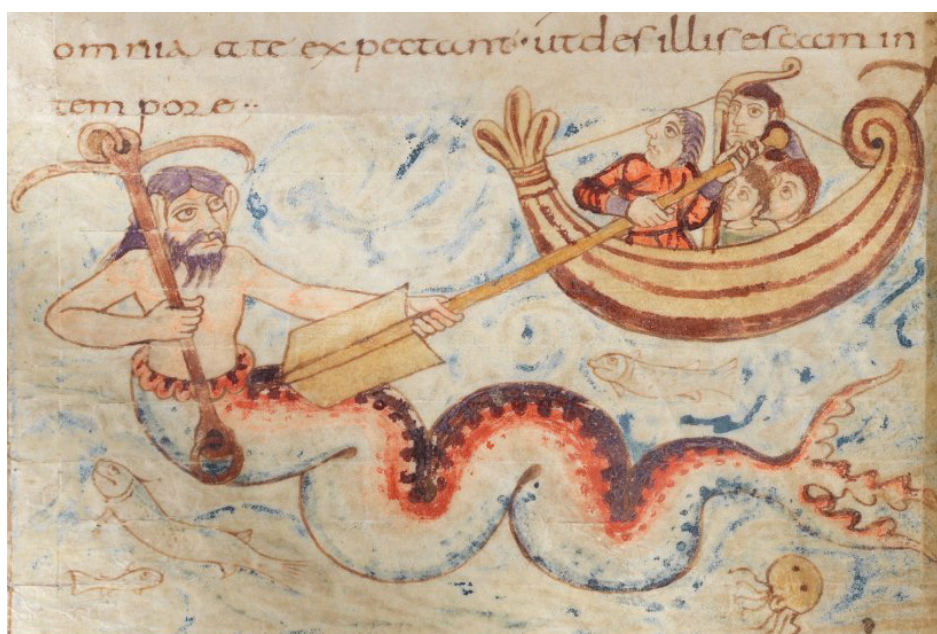 omnia a te expectant · ut des illis escam in
tempore ··